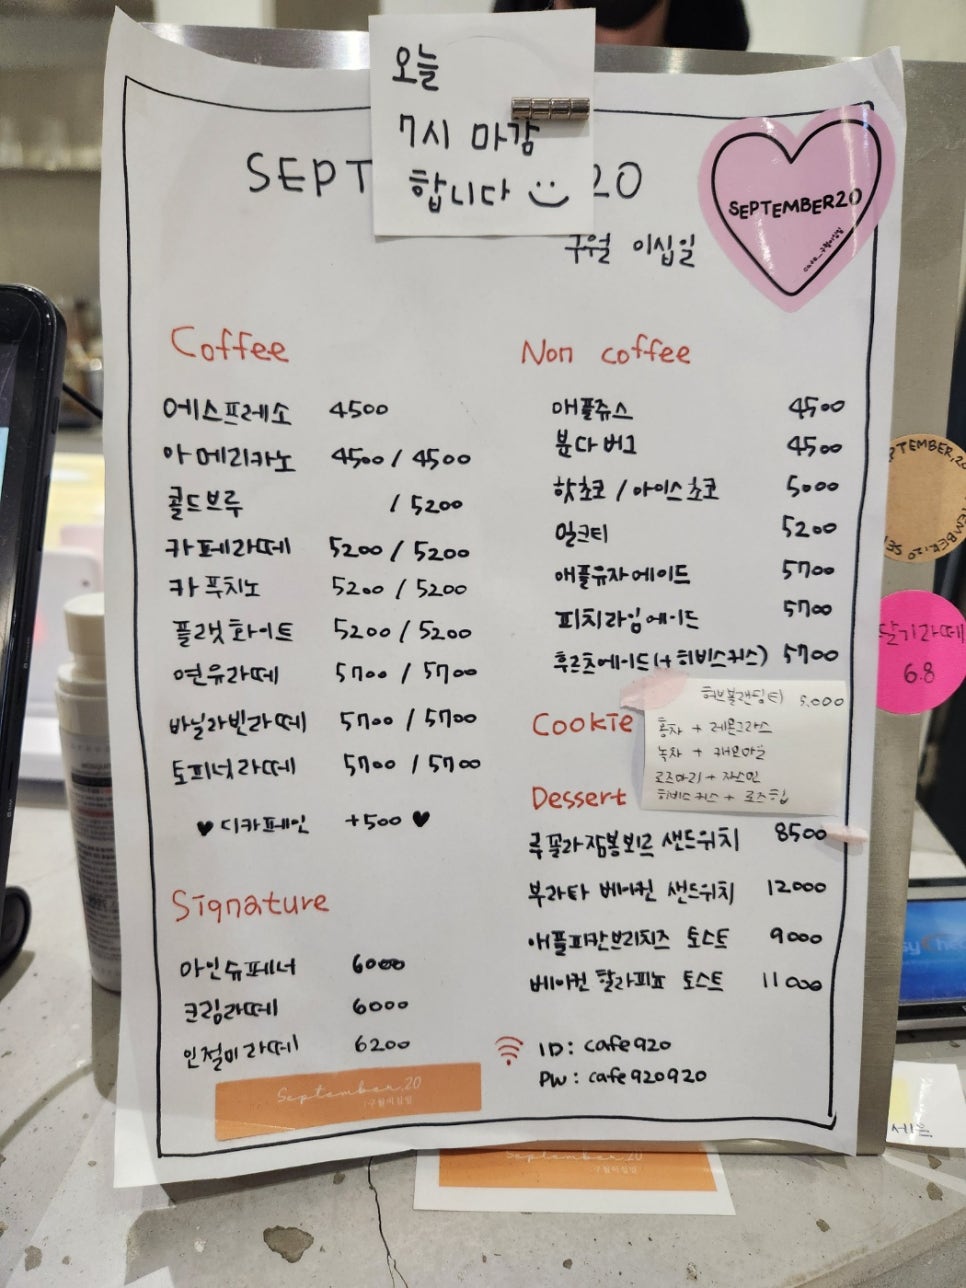 오늘
7시 마감
합니다
SEPT 20
구월 이십일
SEPTEMBER20
cafe_구월이십일
Coffee
에스프레소 4500
아메리카노 4500 / 4500
콜드브루 / 5200
카페라떼 5200 / 5200
카푸치노 5200 / 5200
플랫화이트 5200 / 5200
연유라떼 5700 / 5700
바닐라빈라떼 5700 / 5700
토피넛라떼 5700 / 5700
♥ 디카페인 +500 ♥
Signature
아인슈페너 6000
크림라떼 6000
인절미라떼 6200
September.20
구월이십일
Non coffee
애플쥬스 4500
분다버그 4500
핫초코 / 아이스초코 5000
밀크티 5200
애플유자에이드 5700
피치라임에이드 5700
후르츠에이드(+히비스커스) 5700
허브블랜딩티 5.000
홍차 + 레몬그라스
녹차 + 캐모마일
로즈마리 + 자스민
히비스커스 + 로즈힙
Cookie
Dessert
루꼴라잠봉뵈르 샌드위치 8500
부라타 베이컨 샌드위치 12000
애플피칸브리치즈 토스트 9000
베이컨 할라피뇨 토스트 11000
ID: cafe920
PW: cafe920920
September.20
구월이십일
딸기라떼
6.8